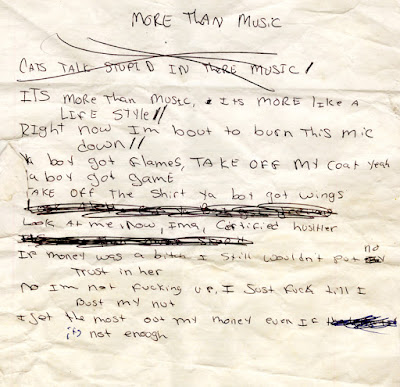 MORE THAN MUSIC
CATS TALK STUPID IN THERE MUSIC /
ITS MORE THAN MUSIC, ITS MORE LIKE A
LIFE STYLE //
RIGHT NOW IM BOUT TO BURN THIS MIC
DOWN //
Ya boy got flames, TAKE OFF MY COAT yeah
ya boy got game
TAKE OFF THE SHIRT ya boy got wings
Look AT me, Now, Ima, Certified hustler
IF money was a bitch I still wouldn't put no
Trust in her
No Im not fucking up, I Just fuck till I
Bust my nut
I get the most out my money even IF
its not enough